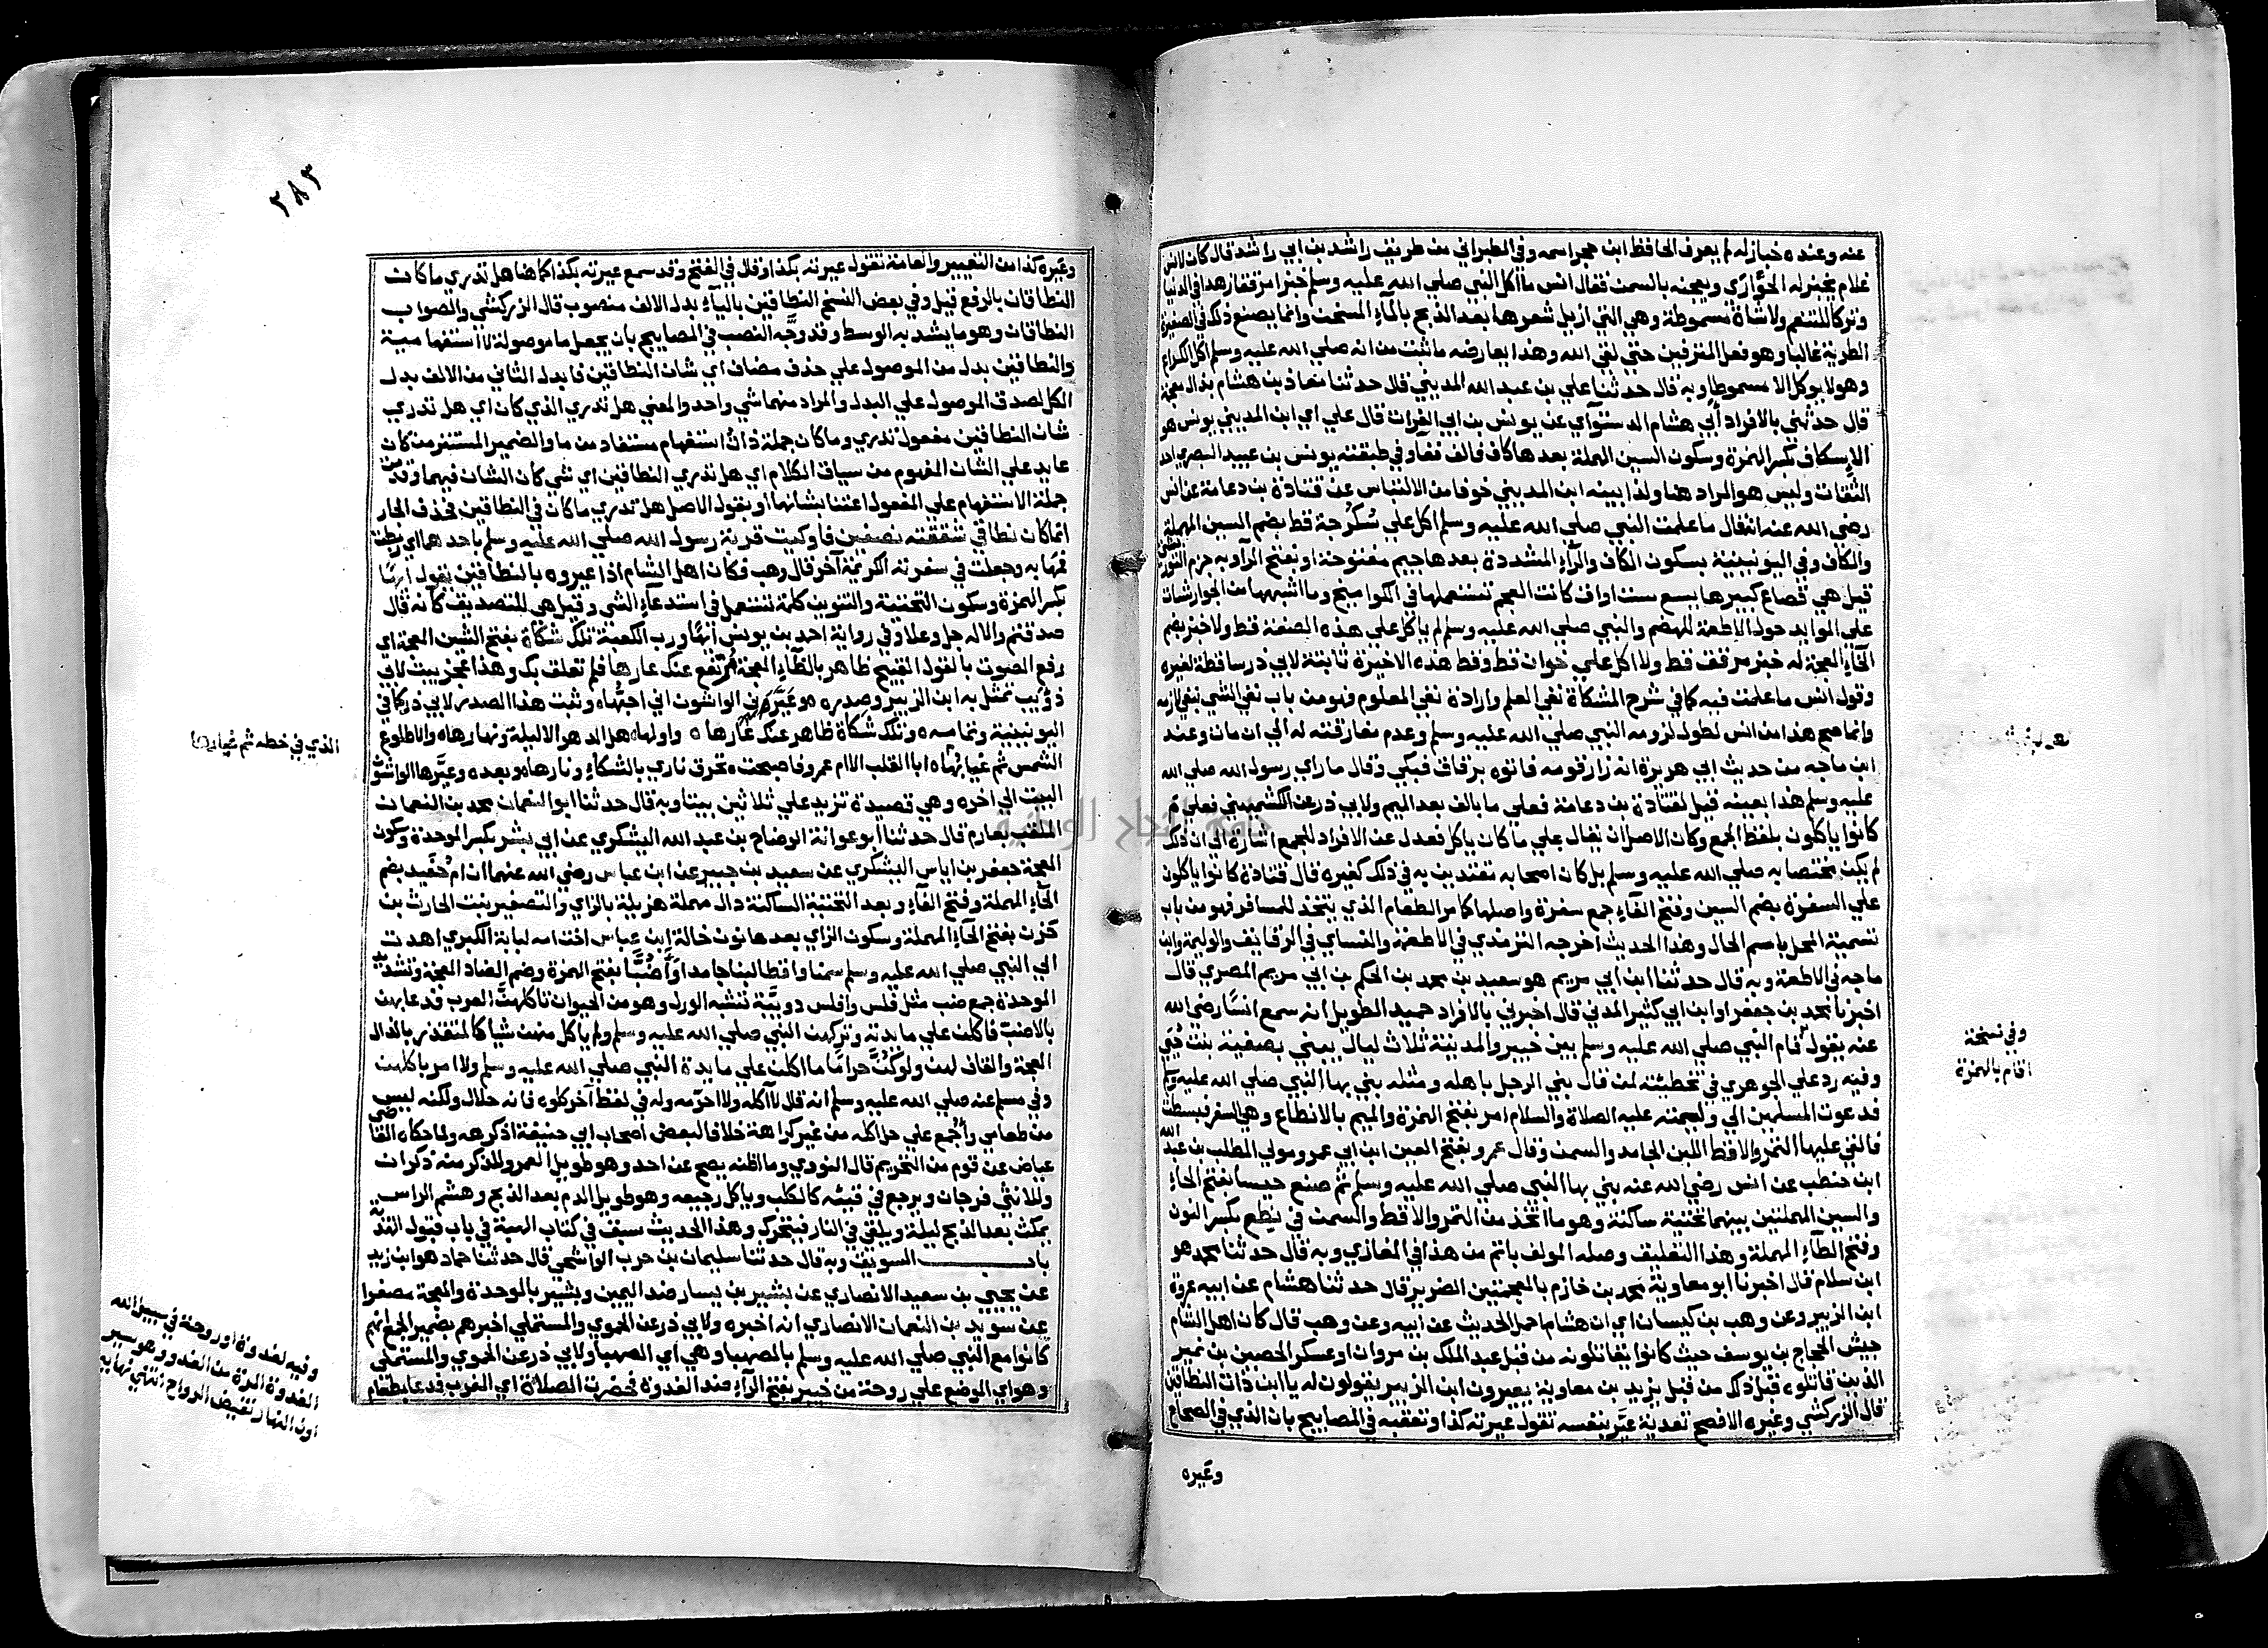 عنه وعنده خباز له لم يعرف الحافظ ابن حجر اسمه وفي الطبراني من طريف راشد بن ابي راشد قال كان لانس
غلام يخبز له الحوّارَي ويعجنه بالسمن فقال انس ما اكل النبي صلي الله عليه وسلم خبزا مرققا زهدا في الدنيا
وتركا للتنعم ولا شاة مسموطة وهي التي ازيل شعرها بعد الذبح بالماء المسخن وانما يصنع ذلك في الصغيرة
الطرية غالبا وهو فعل المترفين حتي لقي الله وهذا يعارضه ما ثبت من انه صلي الله عليه وسلم اكل الكراع
وهو لا يوكل الا مسموطا وبه قال حدثنا علي بن عبد الله المديني قال حدثنا معاذ بن هشام بذال معجمة
قال حدثني بالافراد أبي هشام الدستواي عن يونس بن ابي الفرات قال علي اي ابن المديني يونس هو
الإسكاف بكسر الهمزة وسكون السين المهملة بعدها كاف فالف ففاء وفي طبقته يونس بن عبيد البصري احد
الثقات وليس هو المراد هنا ولذا بينه ابن المديني خوفا من الالتباس عن قتادة بن دعامة عن انس
رضي الله عنه انه قال ما علمت النبي صلي الله عليه وسلم اكل علي سُكرُجة قط بضم السين المهملة
والكاف وفي اليونينية بسكون الكاف والراء المشددة بعدها جيم مفتوحة او بفتح الراء وبه جزم التوربشتي
قيل هي قصاع كبيرها يسع ست اواق كانت العجم تستعملها في الكواميخ وما اشبهها من الجوارشات
علي الموايد حول الاطعمة للهضم والنبي صلي الله عليه وسلم لم ياكل علي هذه الصفة قط ولا خبز بضم
الخاء المعجمة له خبز مرقف قط ولا اكل علي خوان قط وقط هذه الاخيرة ثابتة لابي ذر ساقطة لغيره
وقول انس ما علمت فيه كما في شرح المشكاة نفي العلم وارادة نفي المعلوم فهو من باب نفي الشي بنفي لازمه
وانما صح هذا من انس لطول لزومه النبي صلي الله عليه وسلم وعدم مفارقته له الي ان مات وعند
ابن ماجه من حديث ابي هريرة انه زار قومه فاتوه برقاق فبكي وقال ما راي رسول الله صلي الله
عليه وسلم هذا بعينه قيل لقتادة بن دعامة فعلي ما بالف بعد الميم ولابي ذر عن الكشميهني فعلي م
كانوا ياكلون بلفظ الجمع وكان الاصل ان يقال علي ما كان ياكل فعدل عن الافراد للجمع اشارة الي ان ذلك
لم يكن مختصا به صلي الله عليه وسلم بل كان اصحابه مقتدين به في ذلك كغيره قال قتادة كانوا ياكلون
علي السفرة بضم السين وفتح الفاء جمع سفرة واصلها كما مر الطعام الذي يتخذ للمسافر فهو من باب
تسمية المحل باسم الحال وهذا الحديث اخرجه الترمذي في الاطعمة والنساي في الرقايف والوليمة وابن
ماجه في الاطعمة وبه قال حدثنا ابن ابي مريم هو سعيد بن محمد بن الحكم بن ابي مريم المصري قال
اخبرنا محمد بن جعفر او ابن ابي كثير المدني قال اخبرني بالافراد حميد الطويل انه سمع انسا رضي الله
عنه يقول قام النبي صلي الله عليه وسلم بين خيبر والمدينة ثلاث ليال يبني بصفية بنت حُيَي
وفيه رد علي الجوهري في تخطيئته لمن قال بني الرجل باهله ومثله بني بها النبي صلي الله عليه وسلم
فدعوت المسلمين الي وليمته عليه الصلاة والسلام امر بفتح الهمزة والميم بالانطاع وهي السفر فبسطت
فالقي عليها التمر والاقط اللبن الجامد والسمن وقال عمرو بفتح العين ابن ابي عمرو مولي المطلب بن عبد الله
ابن حنطب عن انس رضي الله عنه بني بها النبي صلي الله عليه وسلم ثم صنع حيسا بفتح الحاء
والسين المهملتين بينهما تحتية ساكنة وهو ما اتخذ من التمر والاقط والسمن في نِطَع بكسر النون
وفتح الطاء المهملة وهذا التعليف وصله المولف باتم من هذا في المغازي وبه قال حدثنا محمد هو
ابن سلام قال اخبرنا ابو معاوية محمد بن خازم بالمعجمتين الضرير قال حدثنا هشام عن ابيه عروة
ابن الزبير وعن وهب بن كيسان اي ان هشاما حمل الحديث عن ابيه وعن وهب قال كان اهل الشام
جيش الحجاج بن يوسف حيث كانوا يقاتلونه من قبل عبد الملك بن مروان او عسكر الحصين بن نمير
الذين قاتلوه قبل ذلك من قبل يزيد بن معاوية يعيرون ابن الزبير يقولون له يا ابن ذات النطاقين
قال الزركشي وغيره الافصح تعدية عيَّر بنفسه تقول عيرته كذا وتعقبه في المصابيح بان الذي في الصحاح
وعَيره
وفي نسخة
اقام بالهمزة
٢٨٣
وعَيره كذا من التعيير والعامة تقول عيرته بكذا وقال في الفتح وقد سمع عيرته بكذا كما هنا هل تدري ما كانت
النطاقان بالرفع قيل وفي بعض النسخ النطاقين بالياء بدل الالف منصوب قال الزركشي والصواب
النطاقان وهو ما يشد به الوسط وقد وجَّه النصب في المصابيح بان يجعل ما موصولة لا استفهامية
والنطاقين بدل من الموصول علي حذف مضاف اي شان النطاقين فابدل الثاني من الاول بدل
الكل لصدق الموصول علي البدل والمراد منهما شي واحد والمعني هل تدري الذي كان اي هل تدري
شان النطاقين مفعول تدري وما كان جملة ذات استفهام مستفاد من ما والضمير المستتر من كان
عايد علي الشان المفهوم من سياق الكلام اي هل تدري النطاقين اي شي كان الشان فيهما وقدمت
جملة الاستفهام علي المفعول اعتنا بشانها او يقول الاصل هل تدري ما كان في النطاقين فحذف الجار
انما كان نطاقي شققته نصفين فاوكيت قربة رسول الله صلي الله عليه وسلم باحدهما اي ربطت
فمها به وجعلت في سفرته الكريمة آخر قال وهب فكان اهل الشام اذا عيروه بالنطاقين يقول ايهًا
بكسر الهمزة وسكون التحتية والتنوين كلمة تستعمل في استدعاء الشي وقيل هي للتصديق كانه قال
صدقتم والاله جل وعلا وفي رواية احمد بن يونس ايها ورب الكعبة تلك شكاة بفتح الشين المعجمة اي
رفع الصوت بالقول القبيح ظاهر بالظاء المعجمة مُرتفع عنك عارها فلم تعلق بك وهذا عجز بيت لابي
ذؤيب تمثل به ابن الزبير وصدره وعَيَّرَني الواشون اني احبُّها وثبت هذا الصدر لابي ذر كما في
اليونينية وتمامه وتلك شكاة ظاهر عنك عارها واولها هل الدهر الا ليلة ونهارها والا طلوع
الشمس ثم غيارها ابا القلب الا ام عمرو فاصبحت تحرق ناري بالشكاة ونارها وبعده وعيَّرها الواشون
البيت الي اخره وهي قصيدة تزيد علي ثلاثين بيتا وبه قال حدثنا ابو النعمان محمد بن النعمان
الملقب بعارم قال حدثنا ابو عوانة الوضاح بن عبد الله اليشكري عن ابي بشر بكسر الموحدة وسكون
المعجمة جعفر بن اياس اليشكري عن سعيد بن جبير عن ابن عباس رضي الله عنهما ان ام حُفَيد بضم
الحاء المهملة وفتح الفاء وبعد التحتية الساكنة دال مهملة هزيلة بالزاي والتصغير بنت الحارث بن
حَزن بفتح الحاء المهملة وسكون الزاي بعدها نون خالة ابن عباس اخت امه لبابة الكبري اهدت
الي النبي صلي الله عليه وسلم سمنا واقطا لبنا جامدا وأَضُبًّا بفتح الهمزة وضم الضاد المعجمة وتشديد
الموحدة جمع ضب مثل فلس وافلس دويبَّة تشبه الورل وهو من الحيوان تاكله العرب فدعا بهن
بالاضب فاكلن علي مايدته وتركهن النبي صلي الله عليه وسلم ولم ياكل منهن شيا كالمتقذر بالذال
المعجمة والقاف لهن ولو كُنَّ حراما ما اكلن علي مايدة النبي صلي الله عليه وسلم ولا امر باكلهن
وفي مسلم عنه صلي الله عليه وسلم انه قال لا آكله ولا احرّمه وله في لفظ آخر كلوه فانه حلال ولكنه ليس
من طعامي وأجمع علي حل اكله من غير كراهة خلافا لبعض اصحاب ابي حنيفة اذ كرهه ولما حكاه القاضي
عياض عن قوم من التحريم قال النووي وما اظنه يصح عن احد وهو طويل العمر وللذكر منه ذكران
وللانثي فرجان ويرجع في قيئه كالكلب وياكل رجيعه وهو طويل الدم بعد الذبح وهشم الراس
يمكث بعد الذبح ليلة ويلقي في النار فيتحرك وهذا الحديث سبق في كتاب الهبة في باب قبول الهدية
باب السويق وبه قال حدثنا سليمان بن حرب الواشحي قال حدثنا حماد هو ابن زيد
عن يحيي بن سعيد الانصاري عن بشير بن يسار ضد اليمين وبشير بالموحدة والمعجمة مصغرا
عن سويد بن النعمان الانصاري انه اخبره ولابي ذر عن الحموي والمستملي اخبرهم بضمير الجمع انهم
كانوا مع النبي صلي الله عليه وسلم بالصهبا وهي أي الصهبا ولابي ذر عن الحموي والمستملي
وهو اي الموضع علي روحة من خيبر بفتح الراء ضد الغدوة فحضرت الصلاة اي المغرب فدعا بطعام
الذي في خطه ثم غيار
وفيه لغدوة او روحة في سبيل الله
الغدوة المرة من الغدو وهو سير
اول النهار نقيض الرواح انتهي نهاية